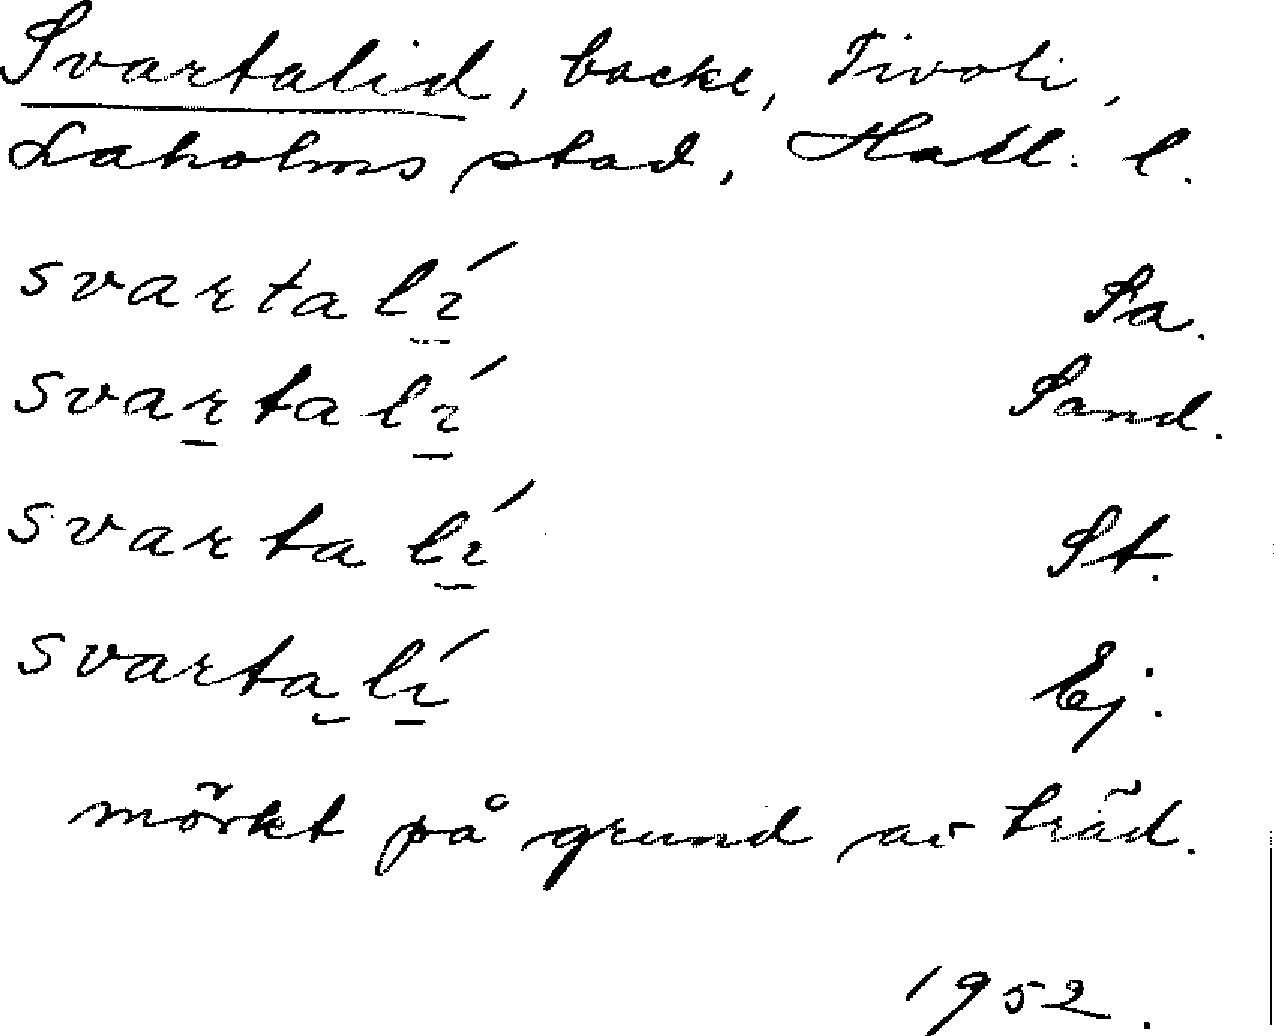 Svartalid, backe, Tivoli,
Laholms stad, Hall. l.
svartalí Sa.
svartalí Sand.
svartalí St.
svartalí Ej.
mörkt på grund av träd.
1952.